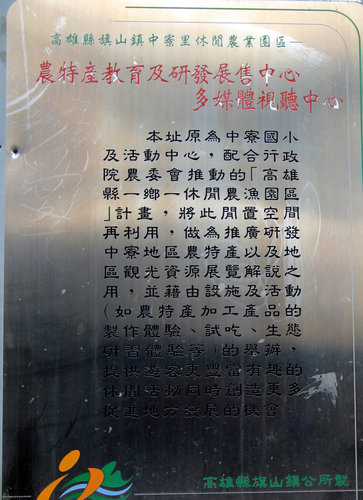 高雄縣旗山鎮中寮里休閒農業園區－
農特產教育及研發展售中心
多媒體視聽中心
本址原為中寮國小
及活動中心，配合行政
院農委會推動的「高雄
縣一鄉一休閒農漁園區
」計畫，將此閒置空間
再利用，做為推廣研發
中寮地區農特產以及地
區觀光資源展覽解說之
用，並藉由設施及活動
(如農特產加工產品的
製作體驗、試吃、生態
研習體驗等)的舉辦，
提供遊客更豐富有趣的
休閒活動同時創造更多
促進地方發展的機會。
高雄縣旗山鎮公所製